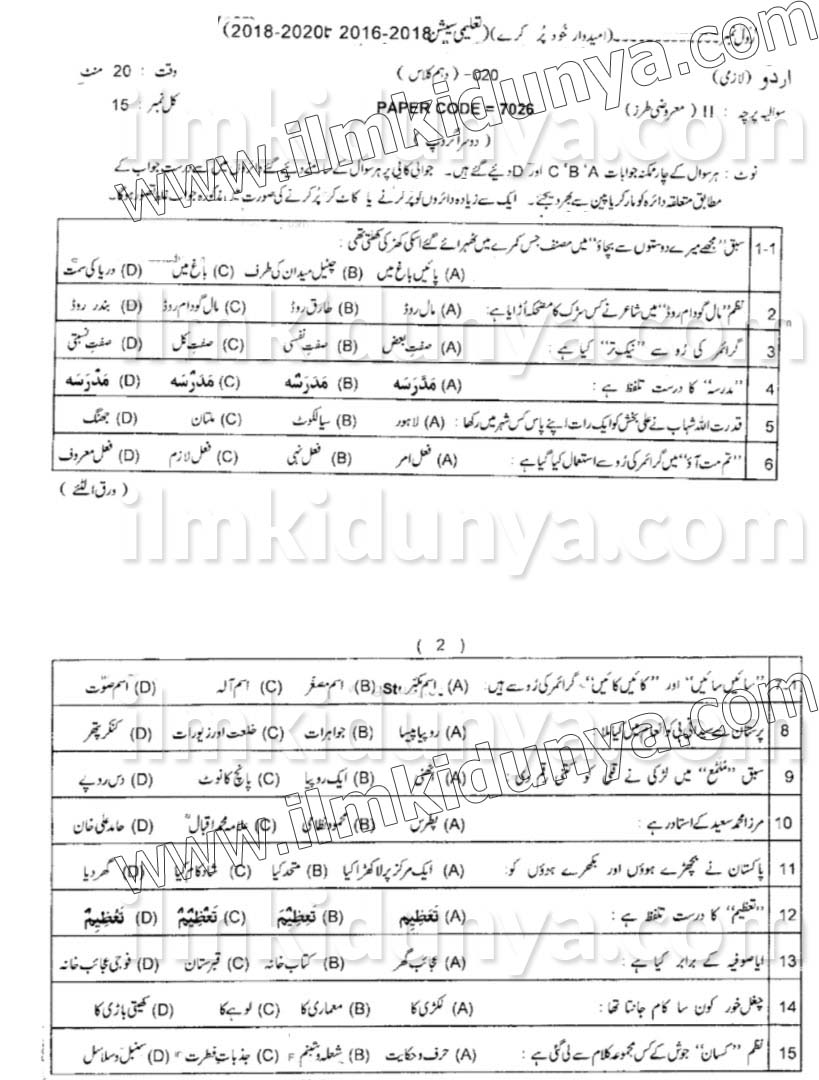 رول نمبر ـ ـ ـ ـ ـ ـ ـ ـ ـ ـ ـ ـ ـ (امیدوار خود پُر کرے) (تعلیمی سیشن 2018-2016 تا 2020-2018)
اردو (لازمی) 020-(دہم کلاس) وقت : 20 منٹ
سوالیہ پرچہ : II (معروضی طرز) PAPER CODE = 7026 کل نمبر : 15
(دوسرا گروپ)
نوٹ : ہر سوال کے چار ممکنہ جوابات C ، B ، A اور D دیئے گئے ہیں۔ جوابی کاپی پر ہر سوال کے سامنے دیئے گئے دائروں میں سے درست جواب کے
مطابق متعلقہ دائرہ کو مارکر یا پین سے بھر دیجئے۔ ایک سے زیادہ دائروں کو پُر کرنے یا کاٹ کر پُر کرنے کی صورت میں مذکورہ جواب غلط تصور ہوگا۔
1-1 سبق ”مجھے میرے دوستوں سے بچاؤ“ میں مصنف جس کمرے میں ٹھہرائے گئے اسکی کھڑکی کھلتی تھی :
(A) پائیں باغ میں (B) چٹیل میدان کی طرف (C) باغ میں (D) دریا کی سمت
2 نظم ”مال گودام روڈ“ میں شاعر نے کس سڑک کا مضحکہ اُڑایا ہے : (A) مال روڈ (B) طارق روڈ (C) مال گودام روڈ (D) بندر روڈ
3 گرائمر کی رُو سے ”نیک تر“ کیا ہے : (A) صفتِ بعض (B) صفتِ نفسی (C) صفتِ کل (D) صفتِ نسبتی
4 ”مدرسہ“ کا درست تلفظ ہے : (A) مَدَّرَسَہ (B) مَدرَسُہ (C) مَدَرَسَہ (D) مَدْرَسَہ
5 قدرت اللہ شہاب نے علی بخش کو ایک رات اپنے پاس کس شہر میں رکھا : (A) لاہور (B) سیالکوٹ (C) ملتان (D) جھنگ
6 ”تم مت آؤ“ میں گرائمر کی رُو سے استعمال کیا گیا ہے : (A) فعل امر (B) فعل نہی (C) فعل لازم (D) فعل معروف
(ورق الٹئے)
( 2 )
7-1 ”سائیں سائیں“ اور ”کائیں کائیں“ گرائمر کی رُو سے ہیں : (A) اسم مکبّر (B) اسم مصغّر (C) اسم آلہ (D) اسم صوت
8 پرستان سے سیدانی بی کو انعام میں کیا ملا : (A) روپیا پیسا (B) جواہرات (C) خلعت اور زیورات (D) کنکر پتھر
9 سبق ”ملمّع“ میں لڑکی نے قلی کو کتنی رقم دی : (A) اٹھنی (B) ایک روپیا (C) پانچ کا نوٹ (D) دس روپے
10 مرزا محمد سعید کے استاد رہے : (A) پطرس (B) محمود نظامی (C) علامہ محمد اقبالؒ (D) حامد علی خان
11 پاکستان نے بچھڑے ہوؤں اور بکھرے ہوؤں کو : (A) ایک مرکز پر لا کھڑا کیا (B) متحد کیا (C) شاد کام کیا (D) گھر دیا
12 ”تعظیم“ کا درست تلفظ ہے : (A) تَعَظِیم (B) تَعِظِیْم (C) تَعَظِیْمْ (D) تَعْظِیْم
13 ایا صوفیہ کے برابر کیا ہے : (A) عجائب گھر (B) کتاب خانہ (C) قبرستان (D) فوجی عجائب خانہ
14 چغل خور کون سا کام جانتا تھا : (A) لکڑی کا (B) معماری کا (C) لوہے کا (D) کھیتی باڑی کا
15 نظم ”کسان“ جوش کے کس مجموعہ کلام سے لی گئی ہے : (A) حرف و حکایت (B) شعلہ و شبنم (C) جذباتِ فطرت (D) سنبل و سلاسل
www.ilmkidunya.com
ilmkidunya.com
ilmkidunya.com
ilmkidunya.com
www.ilmkidunya.com
ilmkidunya.com
ilmkidunya.com